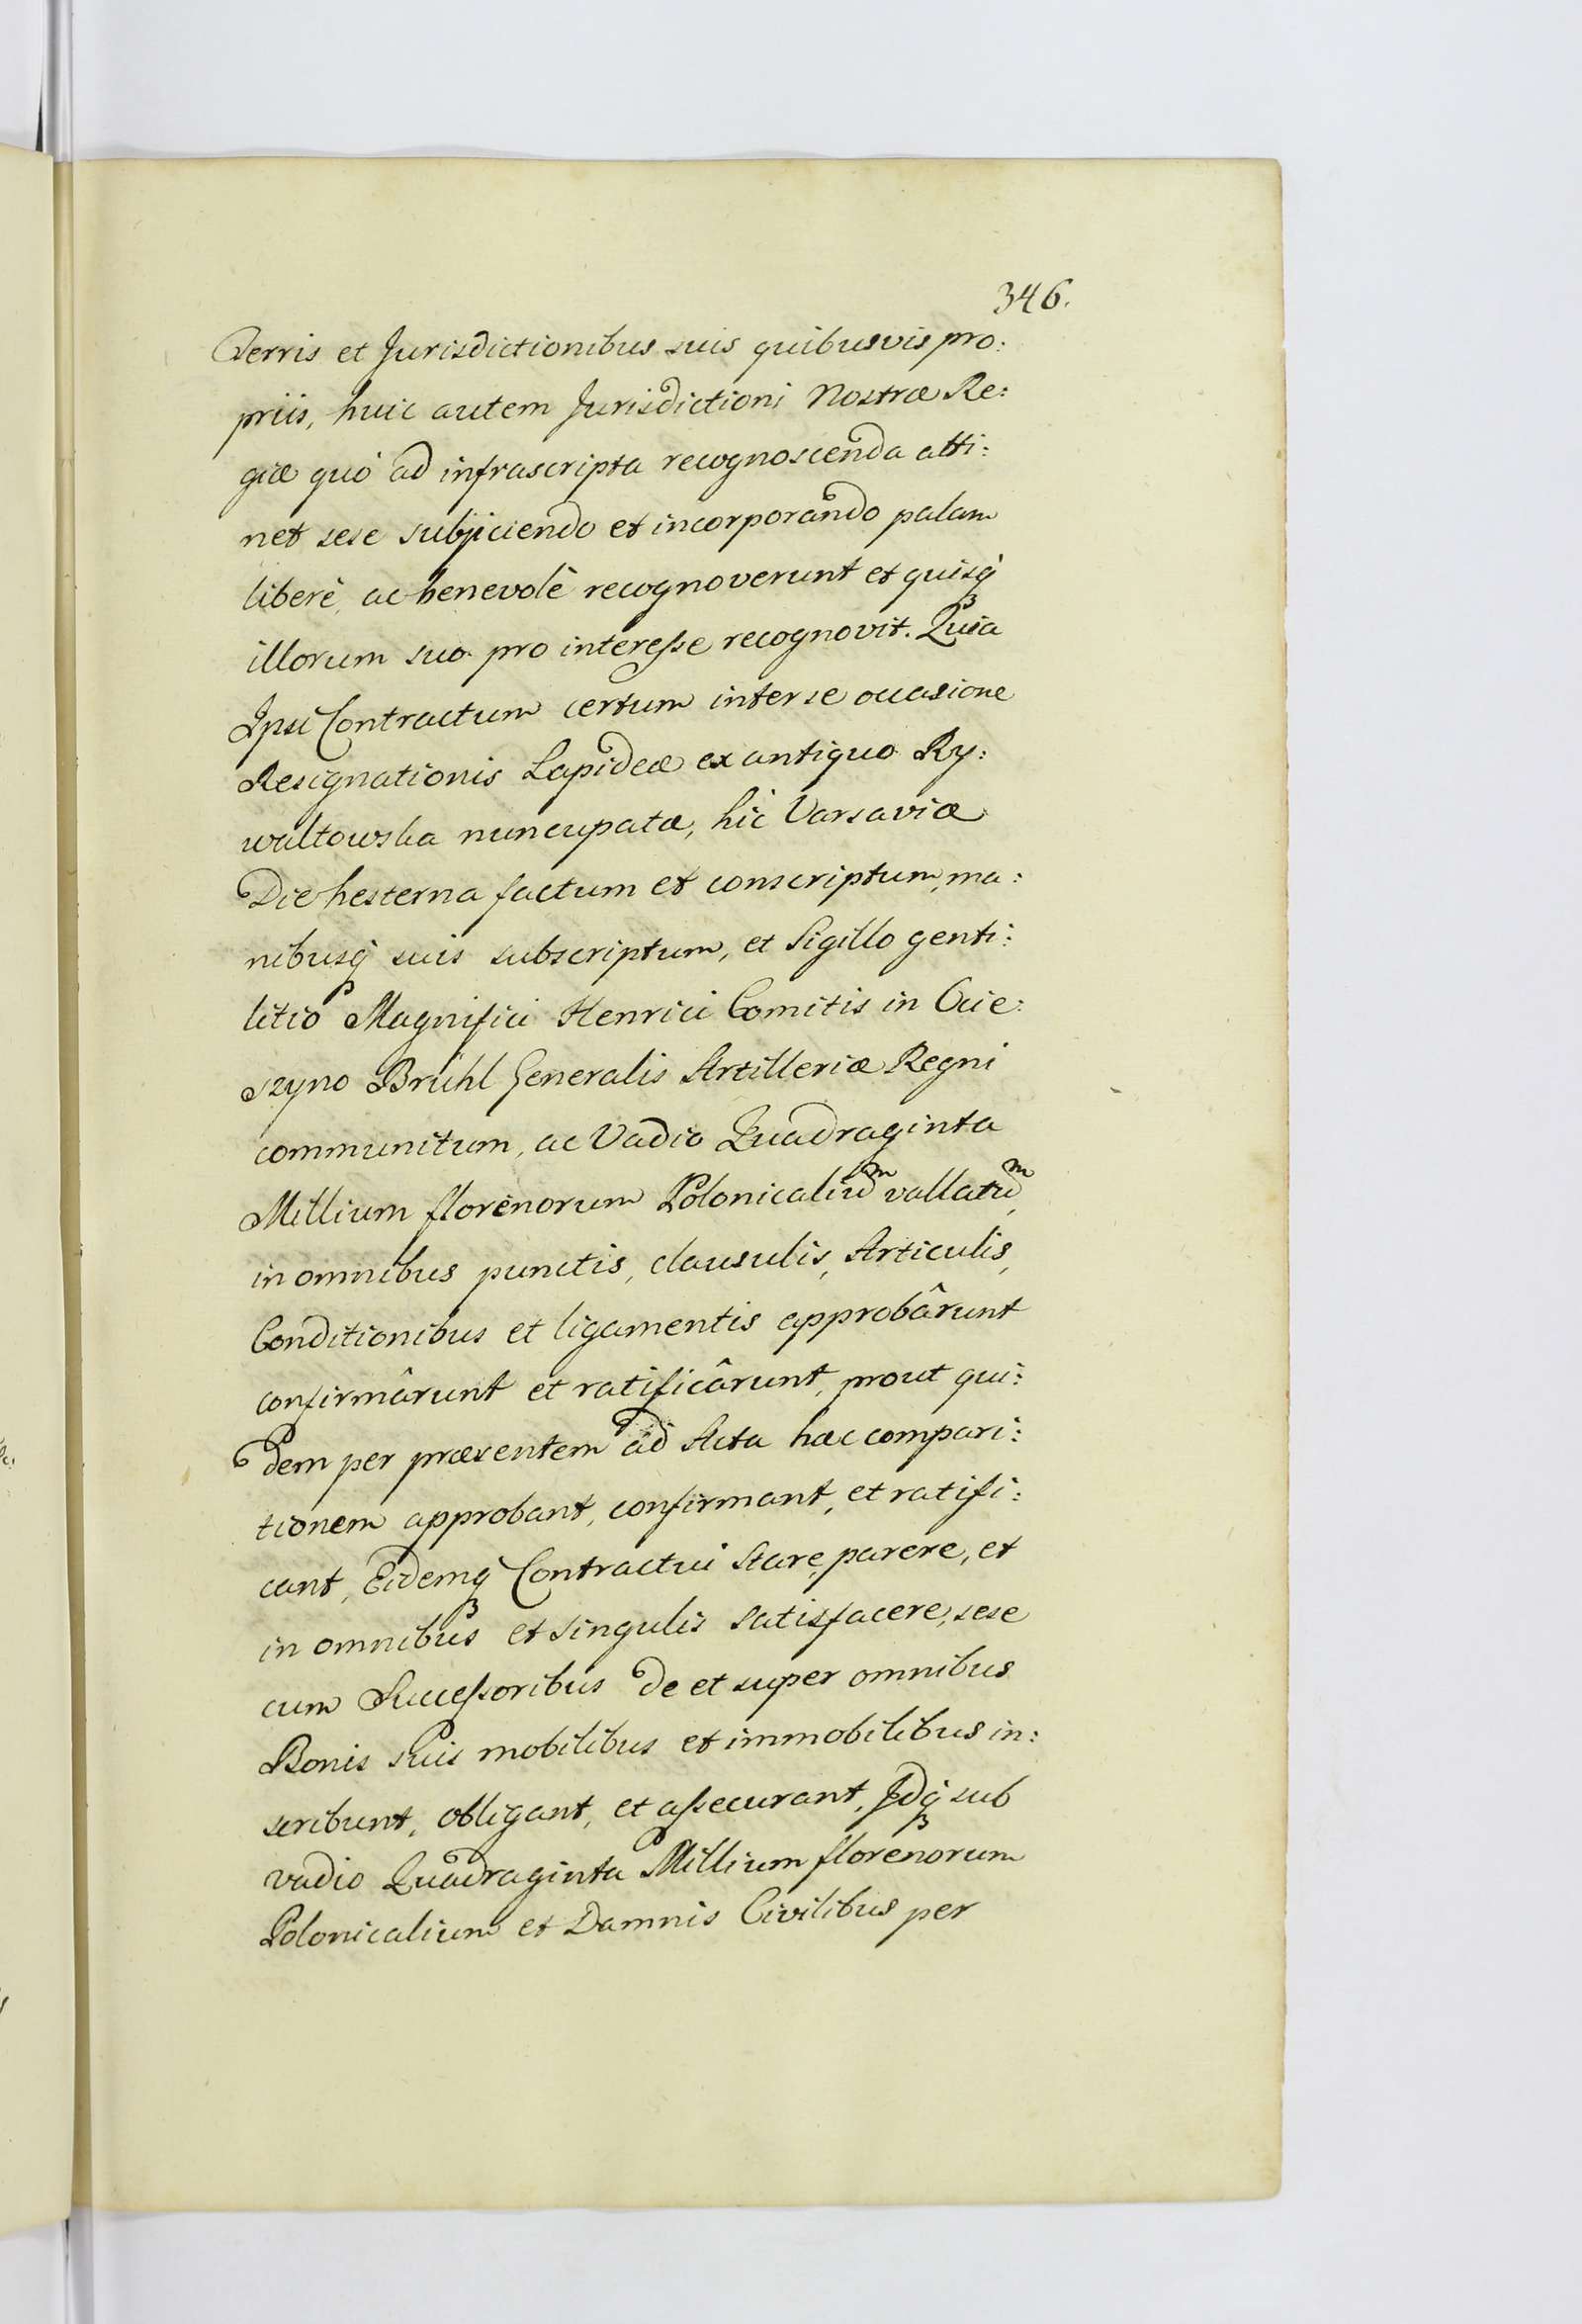 346.
Terris et Jurisdictionibus suis quibusvis pro:
priis, huic autem Jurisdictioni Nostræ Re:
giæ quó ad infrascripta recognoscenda atti:
net sese subjiciendo et incorporando palam
liberè, ac benevolè recognoverunt et quisq́ꝫ
illorum suo pro interesse recognovit. Quia
Ipsi Contractum certum inter se occasione
Resignationis Lapideæ ex antiquo Ry:
waltowska nuncupatæ, hic Varsaviæ
Die hesterna factum et conscriptum, ma:
nibusq́ꝫ suis subscriptum, et Sigillo genti:
litio Magnifici Henrici Comitis in Ocie:
szyno Brühl Generalis Artilleriæ Regni
communitum, ac Vadio Quadraginta
Millium florenorum Polonicaliũm vallatũm,
in omnibus punctis, clausulis, Articulis,
Conditionibus et ligamentis approbârunt
confirmârunt et ratificârunt, prout qui:
dem per præsentem ad Acta hæc compari:
tionem approbant, confirmant, et ratifi:
cant, Eidemq́ꝫ Contractui stare, parere, et
in omnibus et singulis satisfacere, sese
cum Successoribus de et super omnibus
Bonis suis mobilibus et immobilibus in:
scribunt, obligant, et assecurant, Idq́ꝫ sub
vadio Quadraginta Millium florenorum
Polonicalium et Damnis Civilibus per